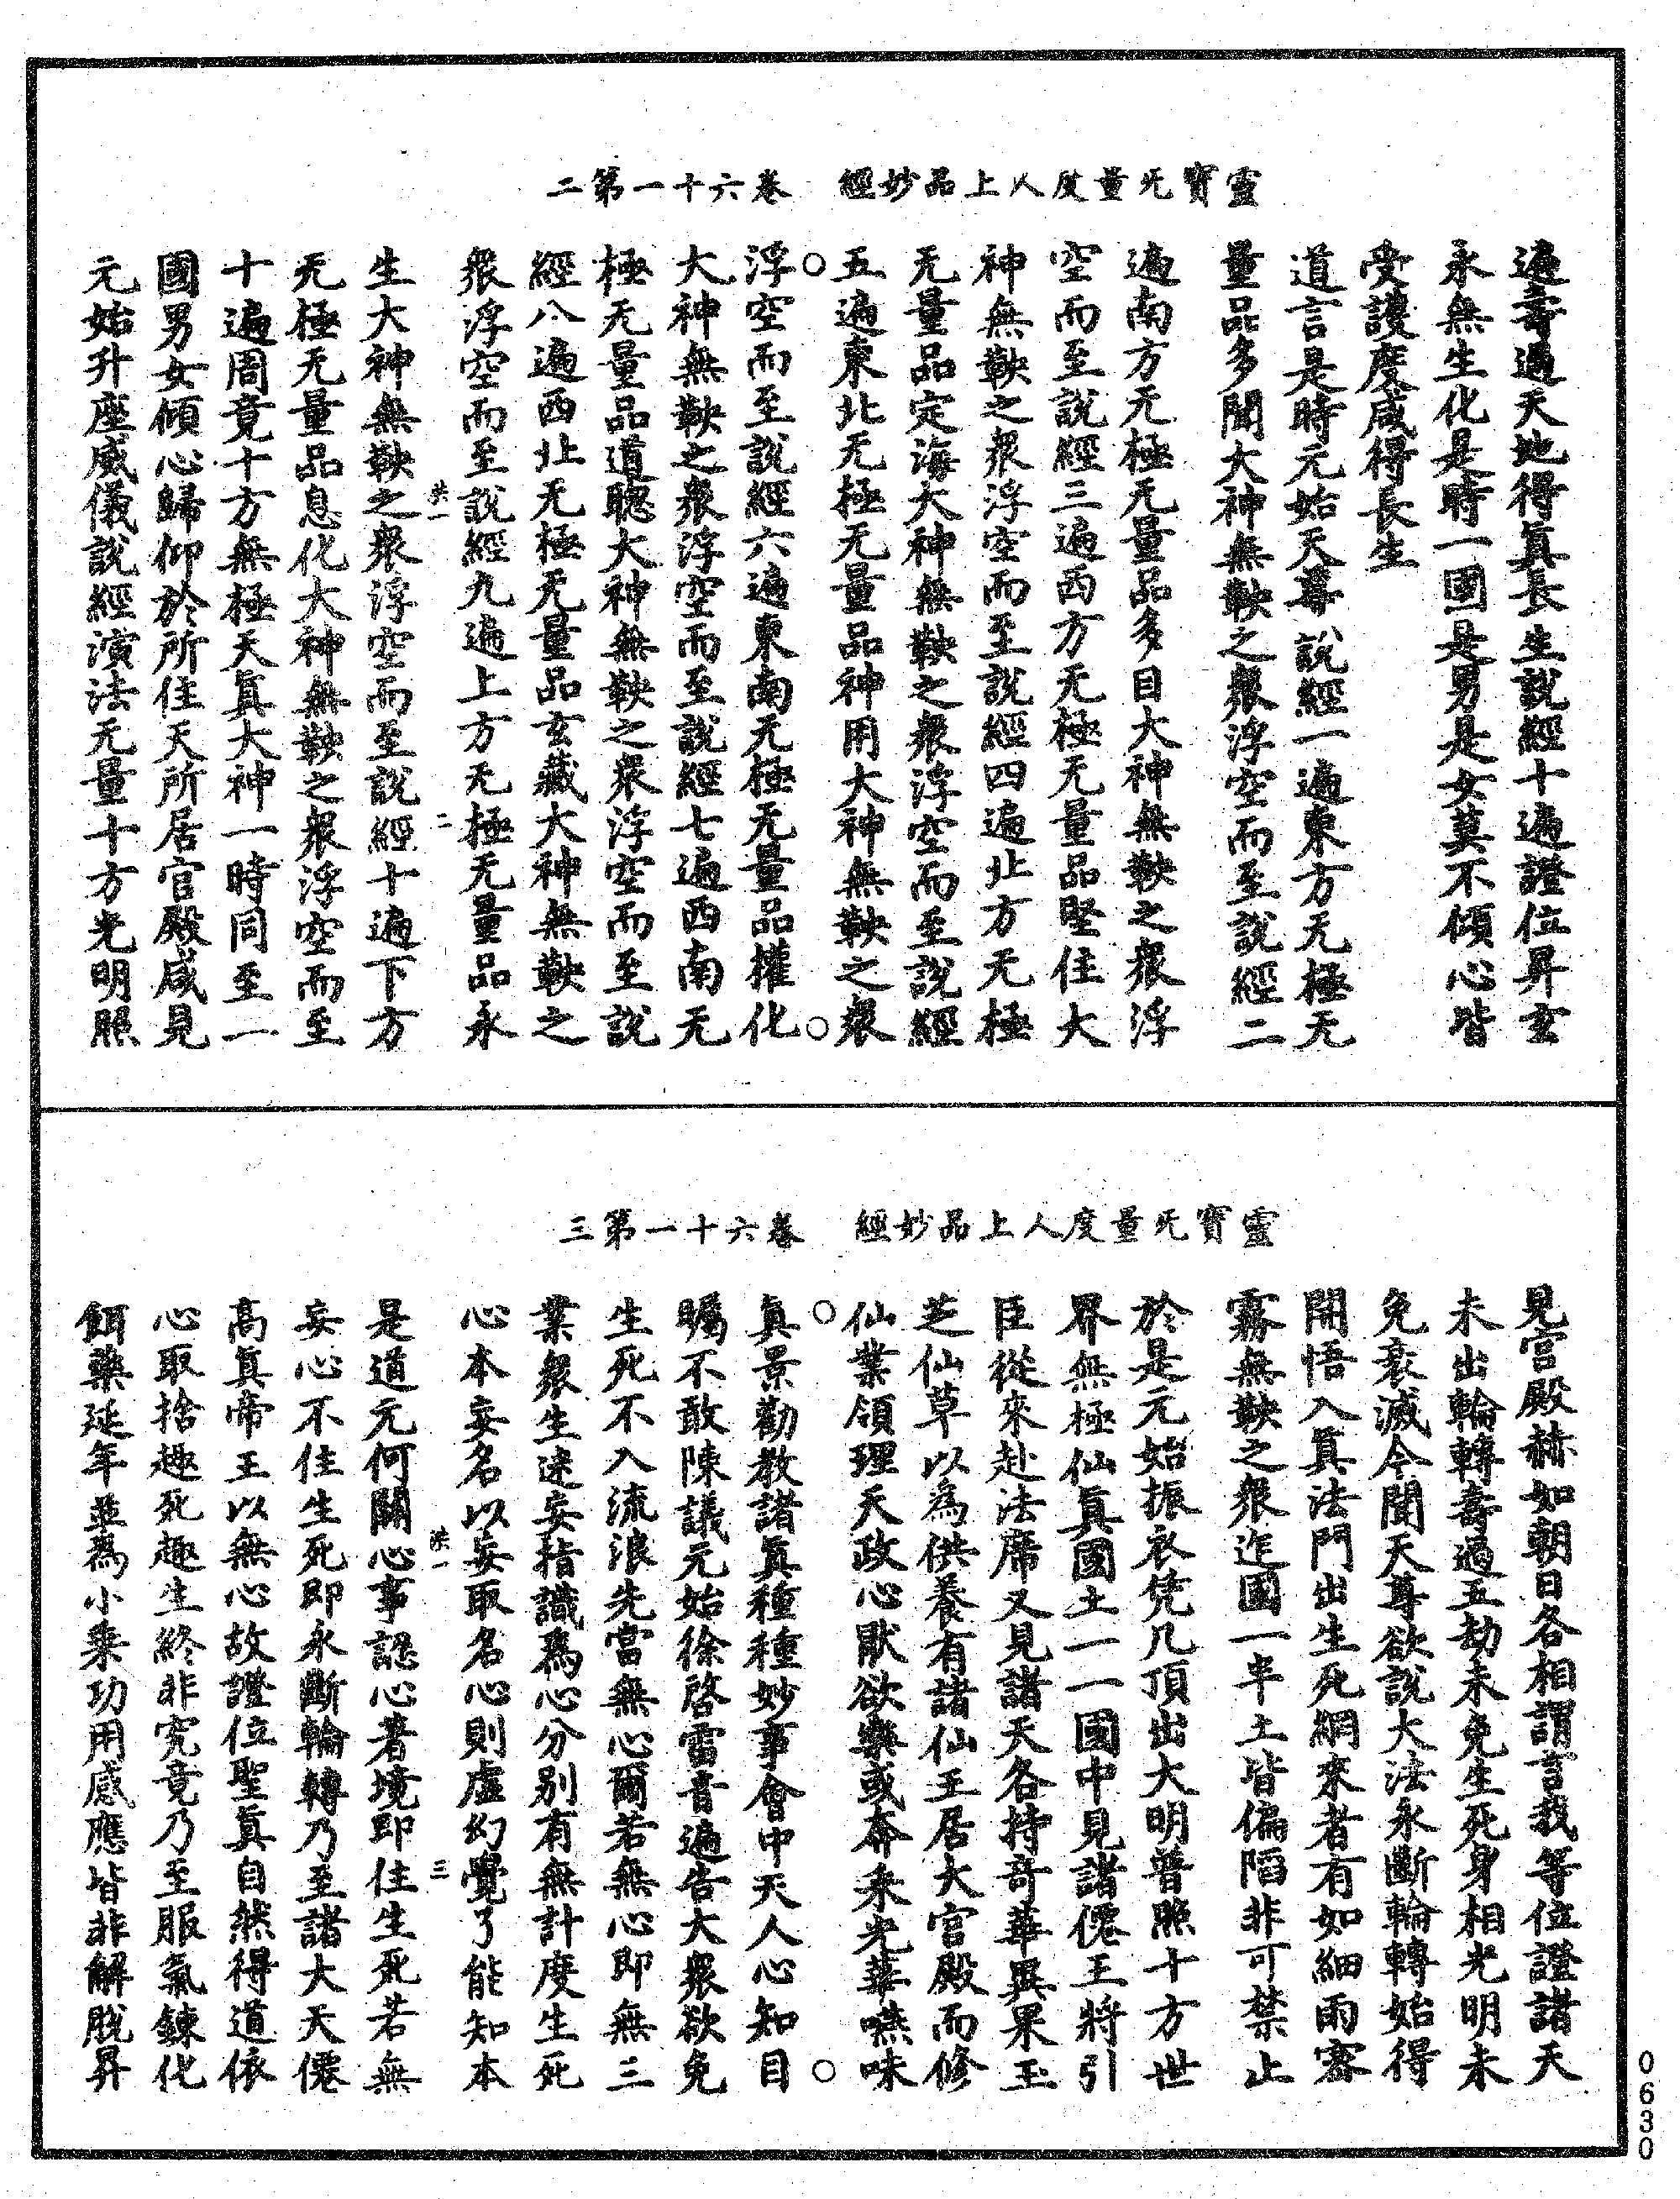 靈寶无量度人上品妙經　卷六十一第二
遍壽過天地得眞長生說經十遍證位昇玄
永無生化是時一國是男是女莫不傾心皆
受護度咸得長生
道言是時元始天尊說經一遍東方无極无
量品多聞大神無鞅之衆浮空而至說經二
遍南方无極无量品多目大神無鞅之衆浮
空而至說經三遍西方无極无量品堅住大
神無鞅之衆浮空而至說經四遍北方无極
无量品定海大神無鞅之衆浮空而至說經
五遍東北无極无量品神用大神無鞅之衆
浮空而至說經六遍東南无極无量品權化
大神無鞅之衆浮空而至說經七遍西南无
極无量品道聰大神無鞅之衆浮空而至說
經八遍西北无極无量品玄藏大神無鞅之
衆浮空而至說經九遍上方无極无量品永
洪一　二
生大神無鞅之衆浮空而至說經十遍下方
无極无量品息化大神無鞅之衆浮空而至
十遍周竟十方無極天眞大神一時同至一
國男女傾心歸仰於所住天所居官殿咸見
元始升座威儀說經演法无量十方光明照
靈寶无量度人上品妙經　卷六十一第三
見宮殿赫如朝日各相謂言我等位證諸天
未出輪轉壽過五劫未免生死身相光明未
免衰滅今聞天尊欲說大法永斷輪轉始得
開悟入眞法門出生死網來者有如細雨密
霧無鞅之衆迮國一半土皆偏陷非可禁止
於是元始振衣凭几頂出大明普照十方世
界無極仙眞國土一一國中見諸僊王將引
臣從來赴法席又見諸天各持奇華異果玉
芝仙草以為供養有諸仙王居大宮殿而修
仙業領理天政心猒欲樂或奔来光華嚥味
眞景勸教諸眞種種妙事會中天人心知目
矚不敢陳議元始徐啓雷音遍告大衆欲免
生死不入流浪先當無心爾若無心即無三
業衆生迷妄指識爲心分别有無計度生死
心本妄名以妄取名心則虛幻覺了能知本
洪一　三
是道元何關心事認心著境即住生死若無
妄心不住生死即永斷輪轉乃至諸大天僊
高眞帝王以無心故證位聖眞自然得道依
心取捨趣死趣生終非究竟乃至服氣鍊化
餌藥延年並爲小乘功用感應皆非解脫昇
0630